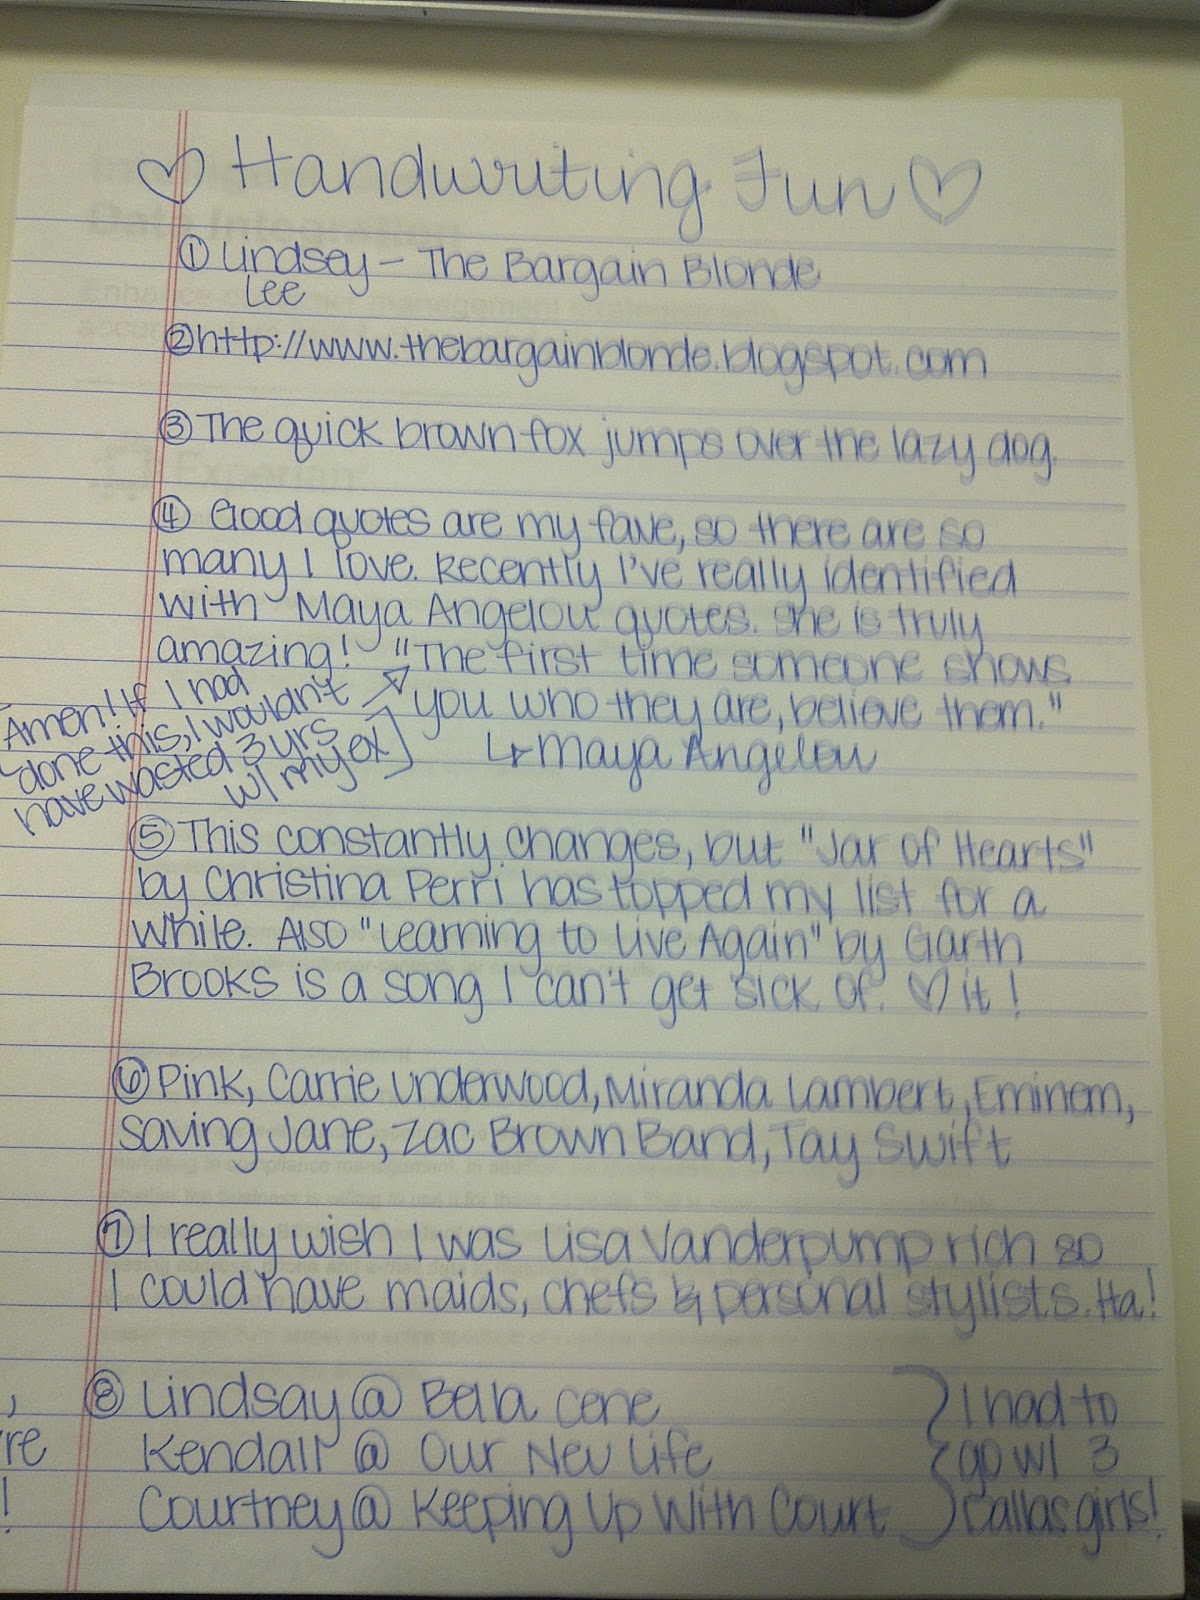 ♡ Handwriting Fun ♡
① Lindsey - The Bargain Blonde
Lee
② http://www.thebargainblonde.blogspot.com
③ The quick brown fox jumps over the lazy dog.
④ Good quotes are my fave, so there are so
many I love. Recently I've really identified
with Maya Angelou quotes. She is truly
amazing! "The first time someone shows
you who they are, believe them."
↳ Maya Angelou
Amen! If I had
done this, I wouldn't
have wasted 3 yrs
w/ my ex]
⑤ This constantly changes, but "Jar of Hearts"
by Christina Perri has topped my list for a
while. Also "Learning to Live Again" by Garth
Brooks is a song I can't get sick of. ♡ it!
⑥ Pink, Carrie Underwood, Miranda Lambert, Eminem,
Saving Jane, Zac Brown Band, Tay Swift
⑦ I really wish I was Lisa Vanderpump rich so
I could have maids, chefs & personal stylists. Ha!
⑧ Lindsay @ Bella Cene
Kendall @ Our New Life
Courtney @ Keeping Up With Court
} I had to
go w/ 3
Dallas girls!
're
!